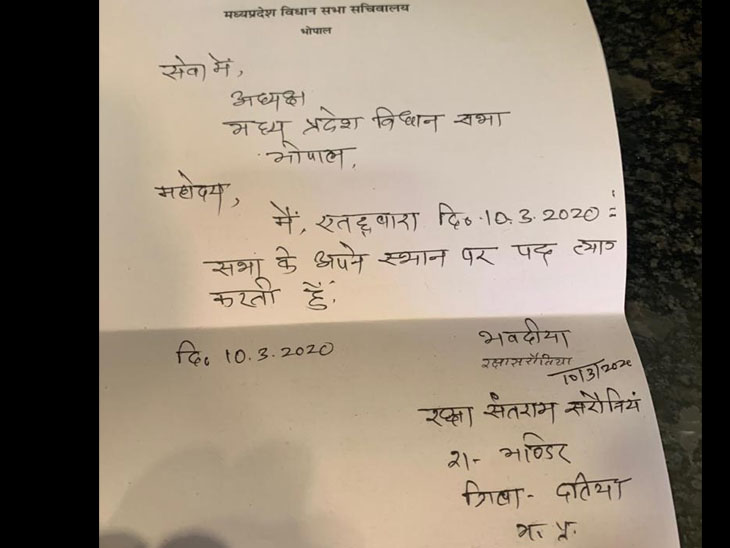 मध्यप्रदेश विधान सभा सचिवालय
भोपाल
सेवा में,
अध्यक्ष
मध्य प्रदेश विधान सभा
भोपाल,
महोदय,
मैं, एतद् द्वारा दि॰ 10.3.2020
सभा के अपने स्थान पर पद त्याग
करती हूँ.
दि॰ 10.3.2020
भवदीया
रक्षा सरौनिया
10/3/2020
रक्षा संतराम सरौनिया
भाण्डेर
जिला - दतिया
म. प्र.